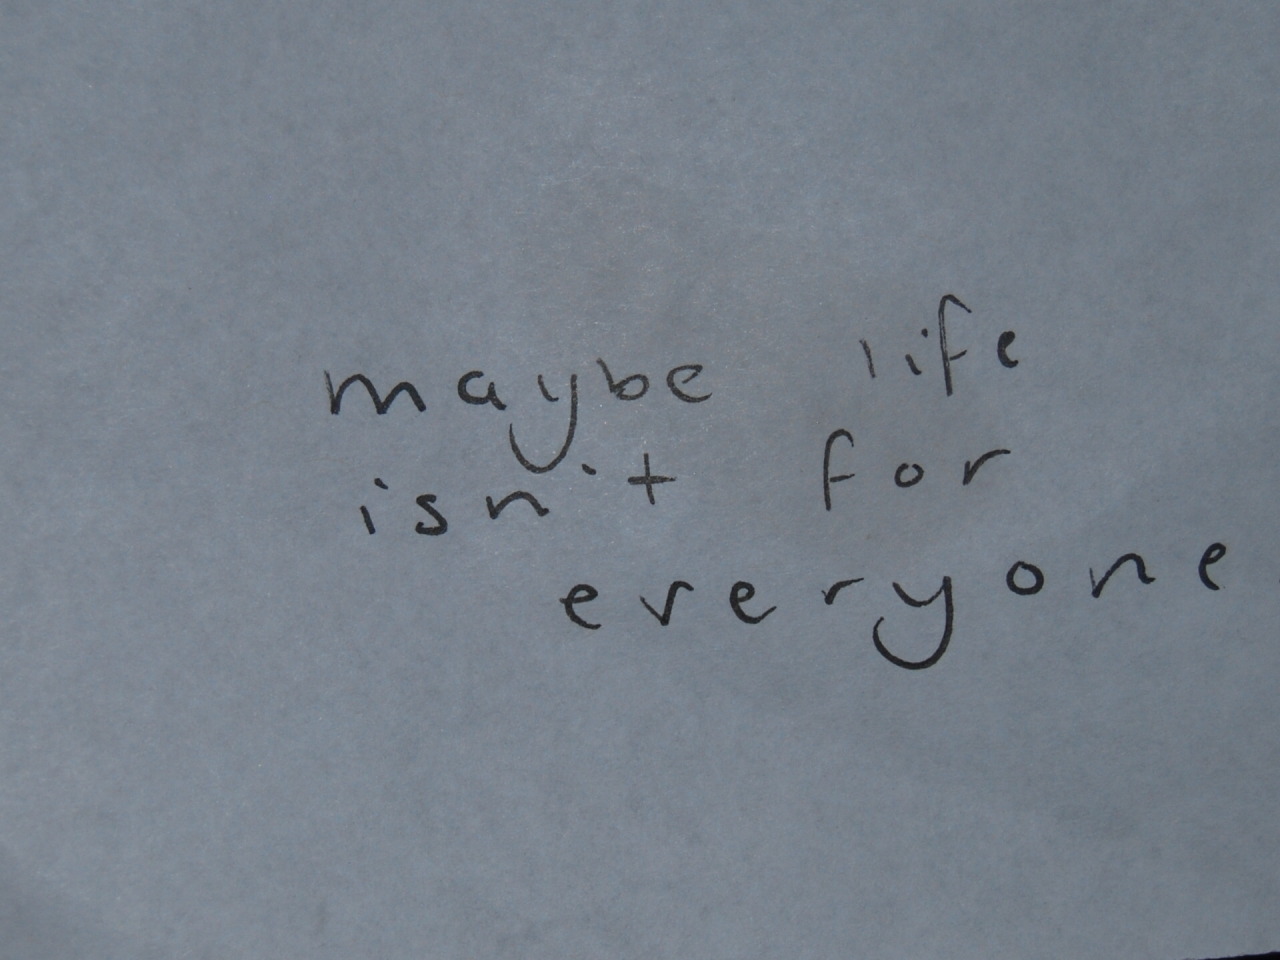 maybe life
isn't for
everyone